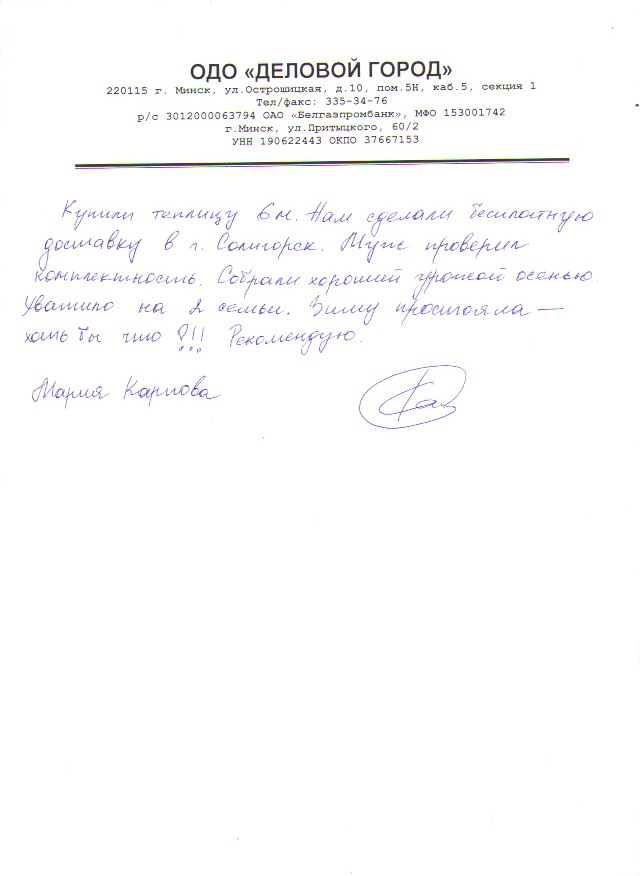 ОДО «ДЕЛОВОЙ ГОРОД»
220115 г. Минск, ул.Острошицкая, д.10, пом.5Н, каб.5, секция 1
Тел/факс: 335-34-76
р/с 3012000063794 ОАО «Белгазпромбанк», МФО 153001742
г.Минск, ул.Притыцкого, 60/2
УНН 190622443 ОКПО 37667153
Купили теплицу 6 м. Нам сделали бесплатную
доставку в г. Солигорск. Муж проверил
комплектность. Собрали хороший урожай осенью.
Хватило на 2 семьи. Зиму простояла —
хоть бы что ?!! Рекомендую.
Мария Карпова